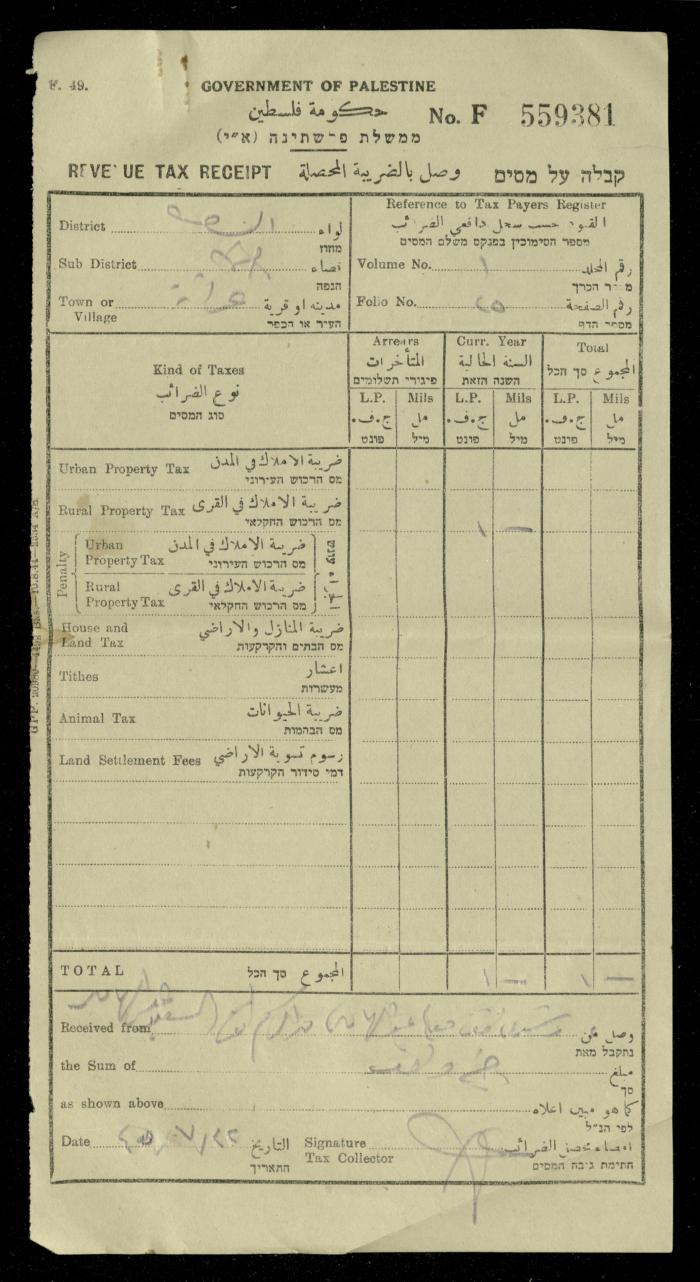 F. 49.
GOVERNMENT OF PALESTINE
حكومة فلسطين
No. F 559381
ממשלת פ־שתינה (א״י)
REVE'UE TAX RECEIPT وصل بالضريبة المحصلة קבלה על מסים
District لواء
מחוז
Sub District قضاء
הנפה
Town or Village عرابة مدينه او قرية
העיר או הכפר
Reference to Tax Payers Register
القيود حسب سجل دافعي الضرائب
מספר הסימוכין בפנקס משלם המסים
Volume No. ١ رقم المجلد
מספר הכרך
Folio No. ٤٥ رقم الصفحة
מספר הדף
Kind of Taxes
نوع الضرائب
סוג המסים
Arrears Curr. Year Total
المتأخرات السنة الحالية المجموع סך הכל
פיגורי תשלומים השנה הזאת
L.P. Mils L.P. Mils L.P. Mils
ج.ف. مل ج.ف. مل ج.ف. مل
פונט מיל פונט מיל פונט מיל
Urban Property Tax ضريبة الاملاك في المدن
מס הרכוש העירוני
Rural Property Tax ضريبة الاملاك في القرى
מס הרכוש החקלאי
١ —
Penalty
Urban Property Tax ضريبة الاملاك في المدن
מס הרכוש העירוני
Rural Property Tax ضريبة الاملاك في القرى
מס הרכוש החקלאי
עונש
House and Land Tax ضريبة المنازل والاراضي
מס הבתים והקרקעות
Tithes اعشار
מעשרות
Animal Tax ضريبة الحيوانات
מס הבהמות
Land Settlement Fees رسوم تسوية الاراضي
דמי סידור הקרקעות
TOTAL סך הכל المجموع ١ — ١ —
Received from وصل من
נתקבל מאת
the Sum of مبلغ
סך
as shown above كما هو مبين اعلاه
לפי הנ״ל
Date التاريخ
התאריך
Signature Tax Collector امضاء محصل الضرائب
חתימת גובה המסים